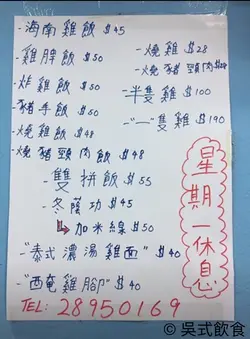 -海南雞飯 $45
-雞脾飯 $50
-炸雞飯 $50
-豬手飯 $50
-燒雞飯 $48
-燒豬頸肉飯 $48
-燒雞 $28
-燒豬頸肉
-半隻雞 $100
-"一"隻雞 $190
-雙拼飯 $55
-冬蔭功 $45
加米線 $50
-"泰式濃湯雞面" $40
-"西奄雞腳" $40
TEL: 28950169
星期一休息
© 吳式飲食